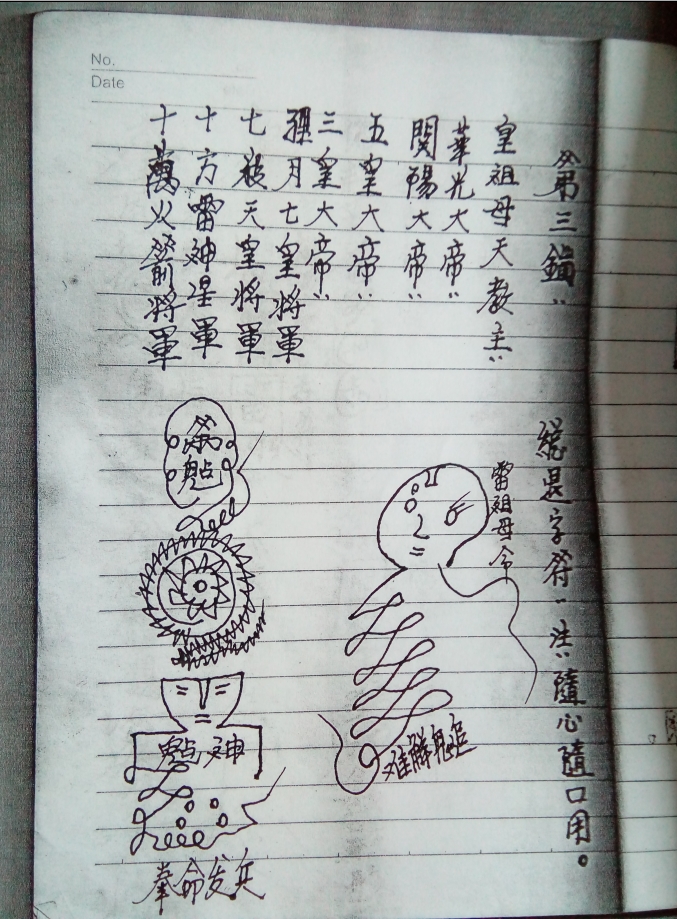 No.
Date
第三鎖
總是字符 法 隨心隨口用。
皇祖母天教主
華光大帝
閔陽大帝
五皇大帝
三皇大帝
月七皇將軍
七殺天皇將軍
十方雷神星軍
十萬火箭將軍
雷祖母令
难解
神
命发兵